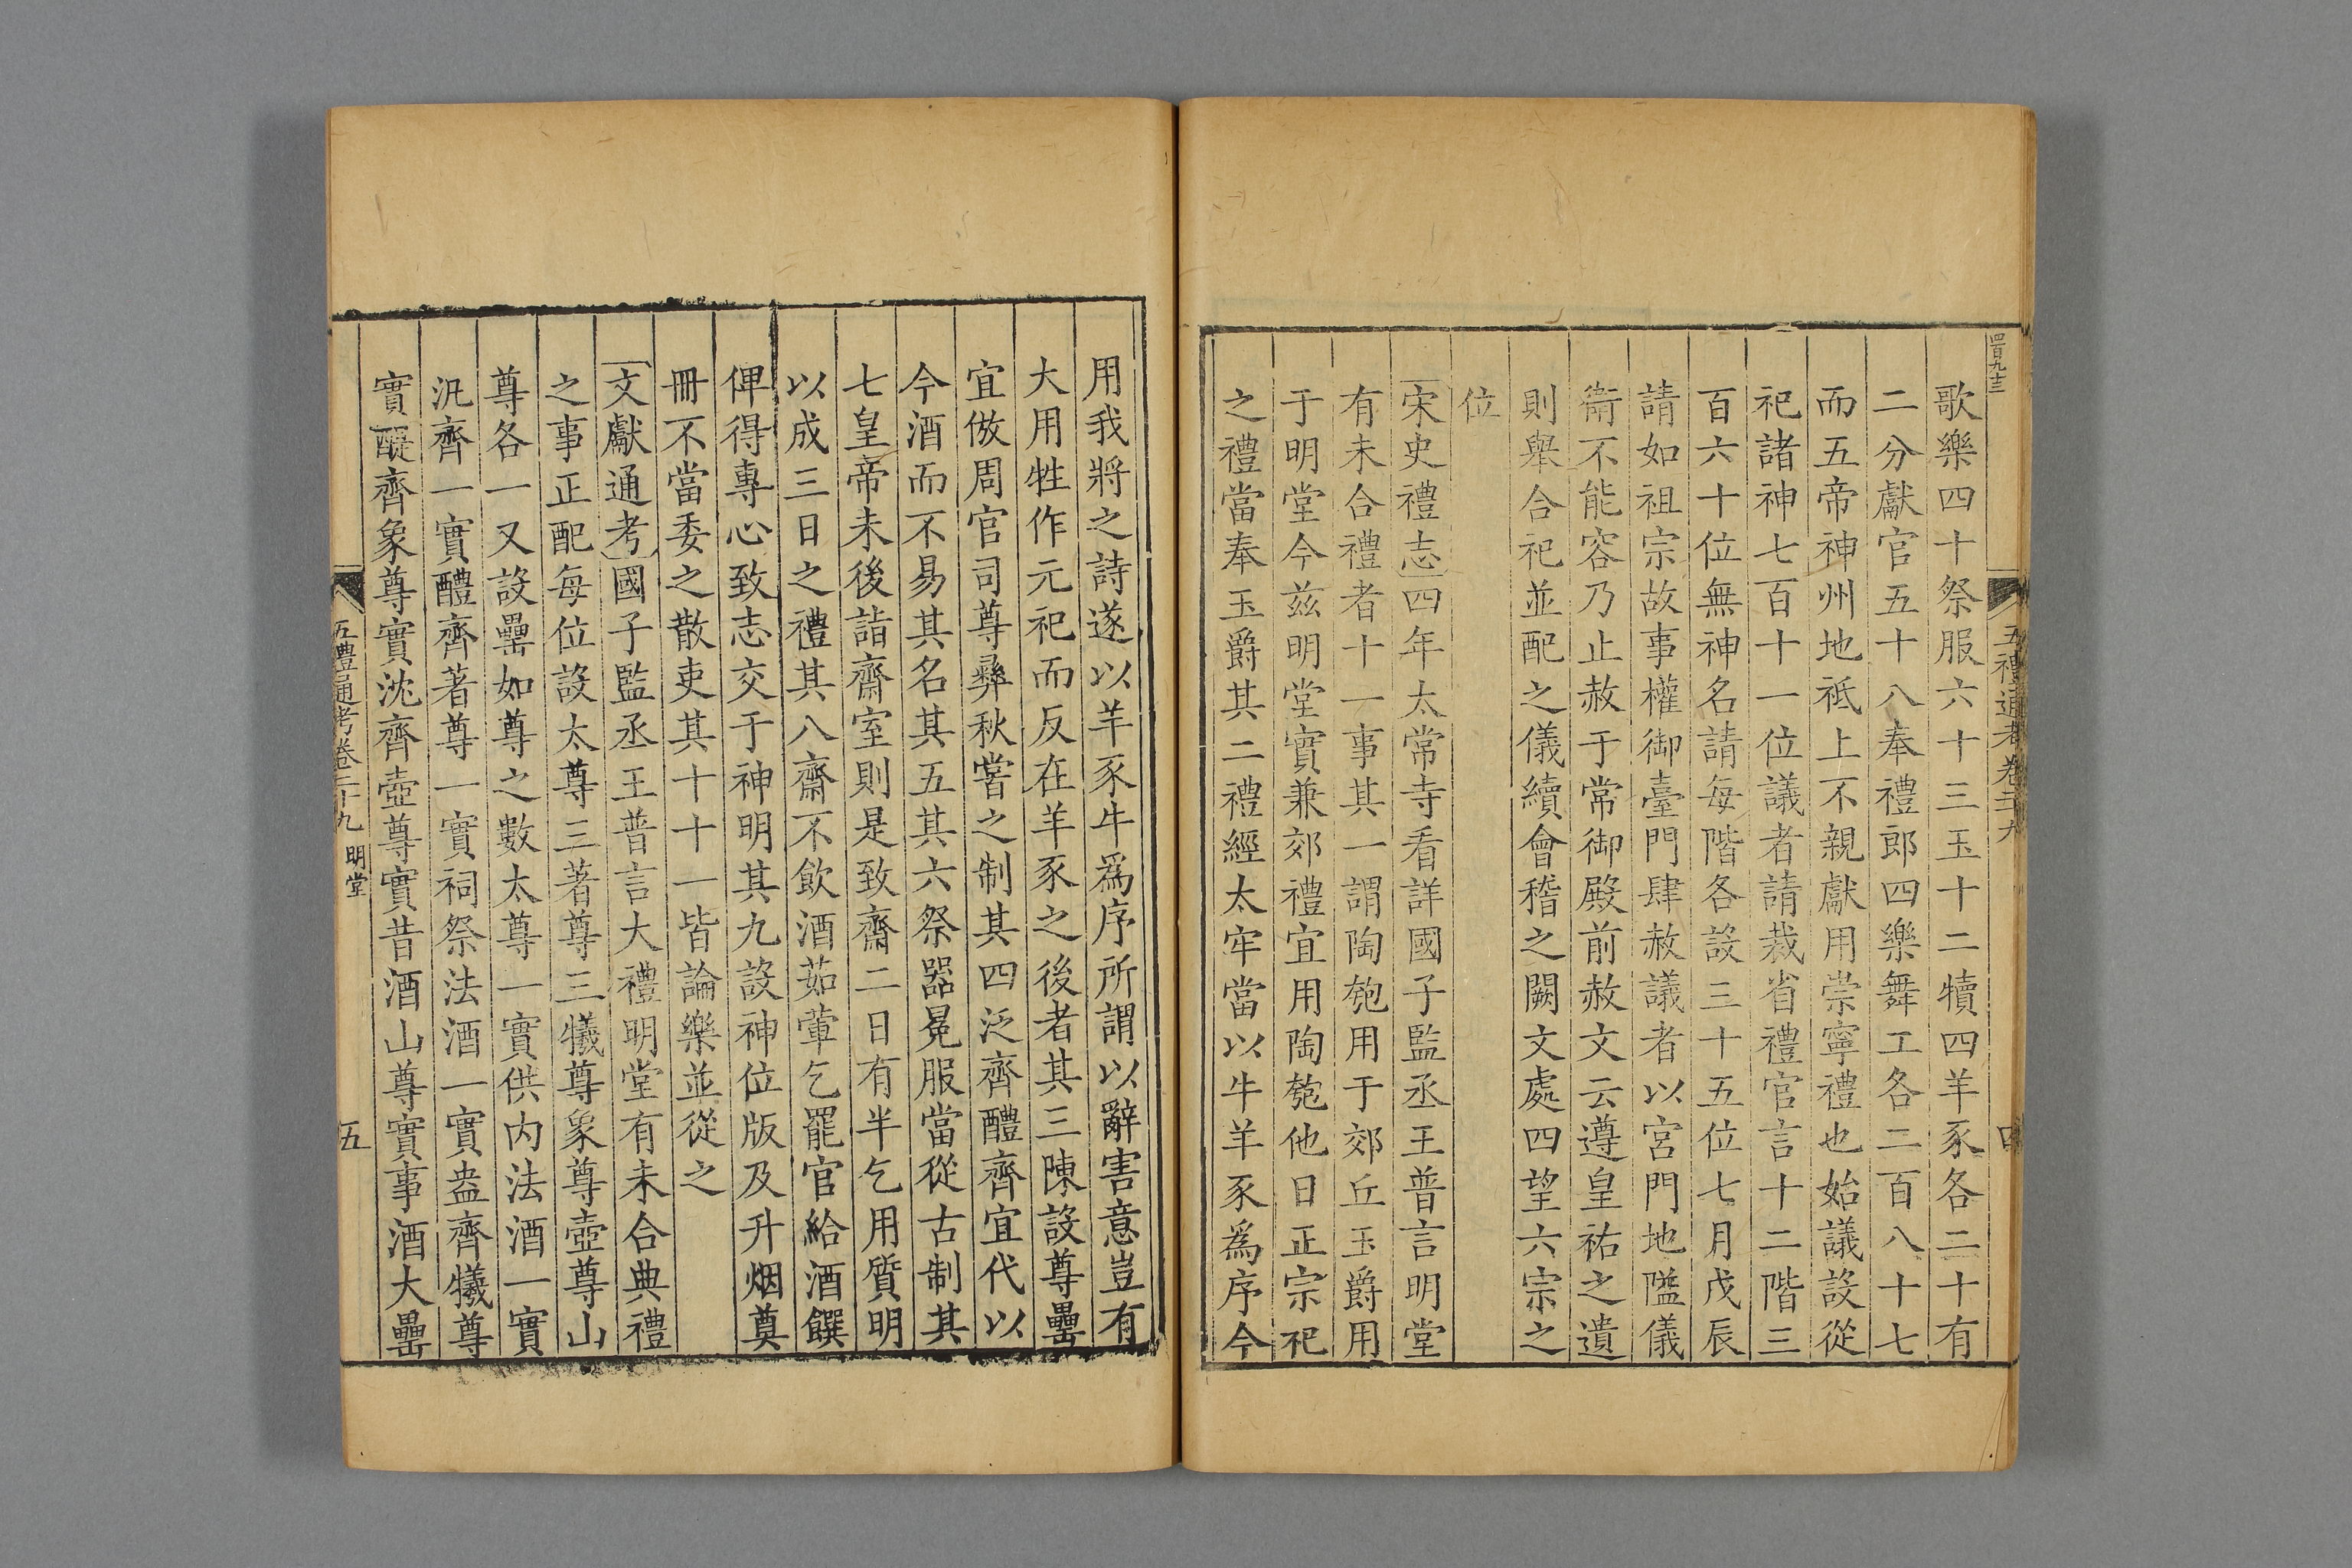 四百九十三
五禮通考卷二十九
四
歌樂四十祭服六十三玉十二犢四羊豕各二十有
二分獻官五十八奉禮郎四樂舞工各二百八十七
而五帝神州地祇上不親獻用崇寧禮也始議設從
祀諸神七百十一位議者請裁省禮官言十二階三
百六十位無神名請每階各設三十五位七月戊辰
請如祖宗故事權御臺門肆赦議者以宮門地隘儀
衞不能容乃止赦于常御殿前赦文云遵皇祐之遺
則舉合祀並配之儀續會稽之闕文處四望六宗之
位
宋史禮志四年太常寺看詳國子監丞王普言明堂
有未合禮者十一事其一謂陶匏用于郊丘玉爵用
于明堂今兹明堂實兼郊禮宜用陶匏他日正宗祀
之禮當奉玉爵其二禮經太牢當以牛羊豕爲序今
用我將之詩遂以羊豕牛爲序所謂以辭害意豈有
大用牲作元祀而反在羊豕之後者其三陳設尊罍
宜倣周官司尊彝秋嘗之制其四泛齊醴齊宜代以
今酒而不易其名其五其六祭器冕服當從古制其
七皇帝未後詣齋室則是致齋二日有半乞用質明
以成三日之禮其八齋不飲酒茹葷乞罷官給酒饌
俾得專心致志交于神明其九設神位版及升烟奠
冊不當委之散吏其十十一皆論樂並從之
文獻通考國子監丞王普言大禮明堂有未合典禮
之事正配每位設太尊三著尊三犧尊象尊壺尊山
尊各一又設罍如尊之數太尊一實供内法酒一實
汎齊一實醴齊著尊一實祠祭法酒一實盎齊犧尊
實醍齊象尊實沈齊壺尊實昔酒山尊實事酒大罍
五禮通考卷二十九 明堂
五